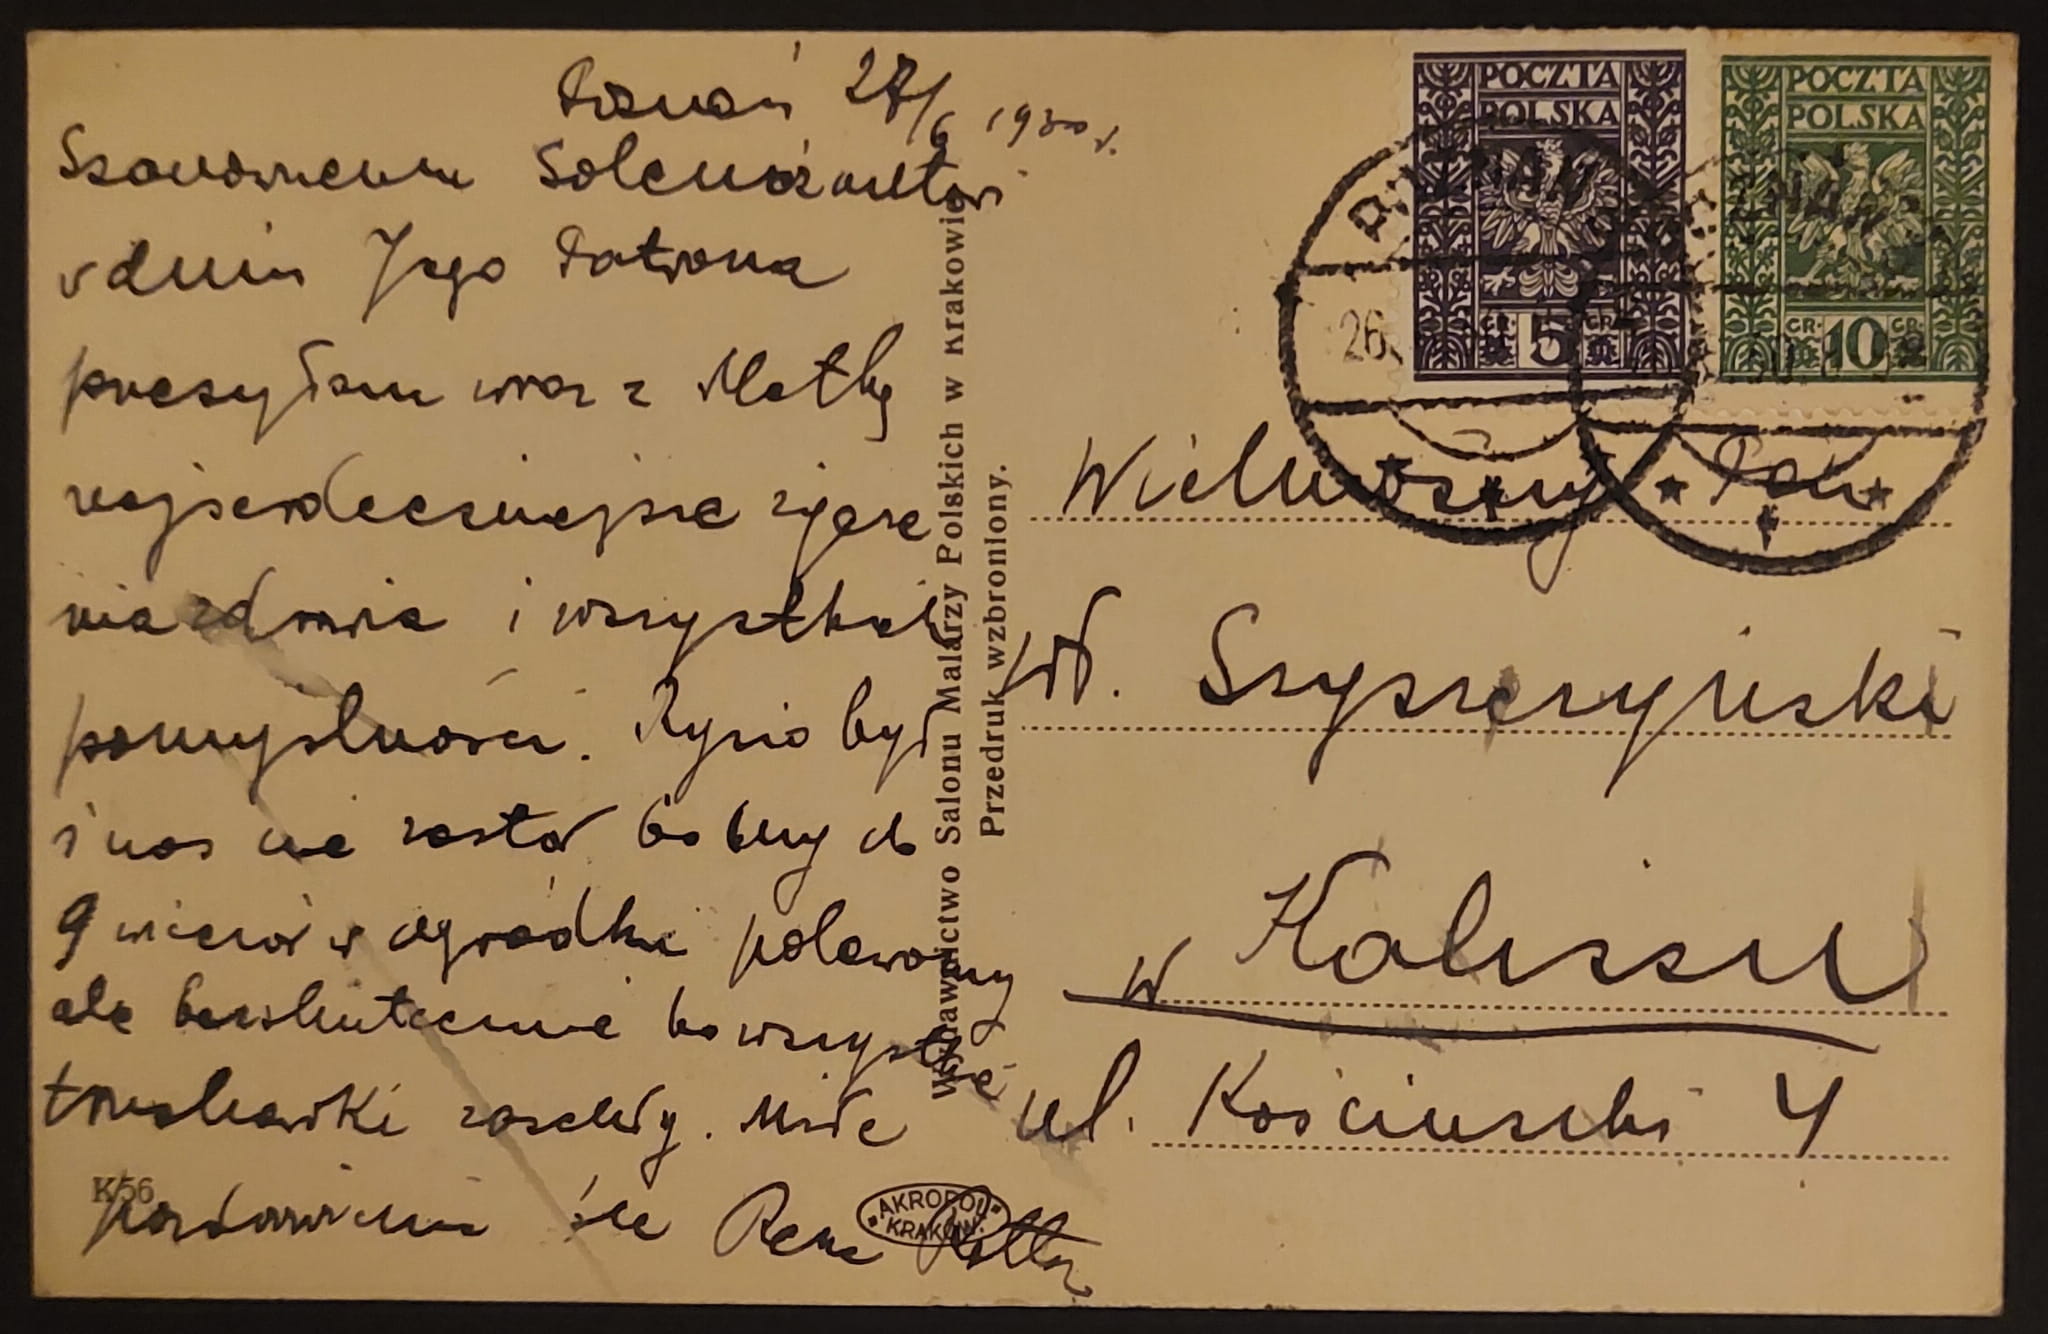 Poznań 27/6 1930 r.
Szanownemu Solenizantowi
w dniu Jego Patrona
przesyłam wraz z Matką
najserdeczniejsze życze
nia zdrowia i wszystkiej
pomyślności. Rysio był
i nas nie zastał bo byłyśmy do
9 wieczór w ogródku polewamy
ale bezskutecznie bo wszystkie
truskawki zaschły. Miłe
pozdrowienia śle Rena
K/56
AKROPOL
KRAKÓW.
Wydawnictwo Salonu Malarzy Polskich w Krakowie.
Przedruk wzbroniony.
POCZTA
POLSKA
GR. 5 GR.
POCZTA
POLSKA
GR. 10 GR.
POZNAŃ
26
POZNAŃ
Wielmożny Pan
Wł. Szyszczyński
w Kaliszu
ul. Kościuszki 4